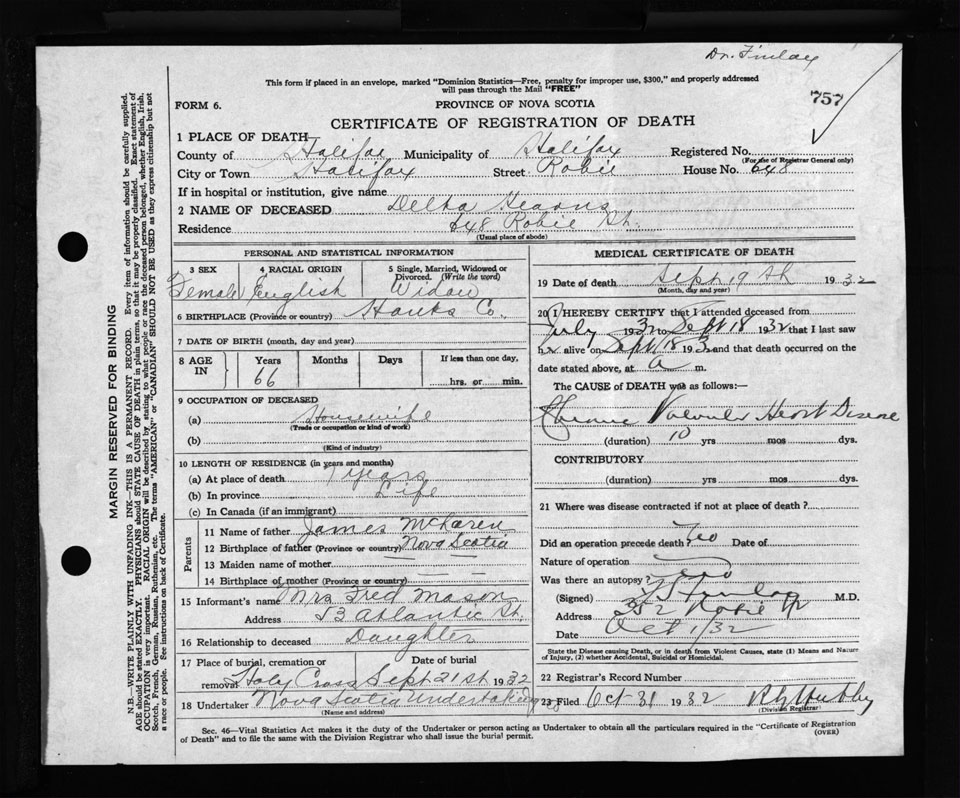 Dr. Finlay
This form if placed in an envelope, marked "Dominion Statistics—Free, penalty for improper use, $300," and properly addressed
will pass through the Mail "FREE"
757
FORM 6.
PROVINCE OF NOVA SCOTIA
CERTIFICATE OF REGISTRATION OF DEATH
1 PLACE OF DEATH
County of Halifax Municipality of Halifax Registered No.
(For use of Registrar General only)
City or Town Halifax Street Robie House No. 648
If in hospital or institution, give name
2 NAME OF DECEASED Delta Hearns
Residence 648 Robie St.
(Usual place of abode)
PERSONAL AND STATISTICAL INFORMATION
3 SEX 4 RACIAL ORIGIN 5 Single, Married, Widowed or Divorced. (Write the word)
Female English Widow
6 BIRTHPLACE (Province or country) Hants Co.
7 DATE OF BIRTH (month, day and year)
8 AGE IN Years Months Days If less than one day,
66 hrs. or min.
9 OCCUPATION OF DECEASED
(a) Housewife
(Trade or occupation or kind of work)
(b)
(Kind of industry)
10 LENGTH OF RESIDENCE (in years and months)
(a) At place of death years
(b) In province Life
(c) In Canada (if an immigrant)
Parents
11 Name of father James McLaren
12 Birthplace of father (Province or country) Nova Scotia
13 Maiden name of mother —
14 Birthplace of mother (Province or country) — —
15 Informant's name Mrs Fred Mason
Address Atlantic St.
16 Relationship to deceased Daughter
17 Place of burial, cremation or removal Date of burial
Holy Cross Sept 21st 1932
18 Undertaker Nova Scotia Undertaking
(Name and address)
MEDICAL CERTIFICATE OF DEATH
19 Date of death Sept 19th 1932
(Month, day and year)
20 I HEREBY CERTIFY that I attended deceased from
July 1932 to Sept 18 1932 that I last saw
her alive on Sept 18 193 and that death occurred on the
date stated above, at a m.
The CAUSE of DEATH was as follows:—
Chronic Valvular Heart Disease
(duration) 10 yrs mos dys.
CONTRIBUTORY
(duration) yrs. mos. dys.
21 Where was disease contracted if not at place of death?
Did an operation precede death? No Date of
Nature of operation
Was there an autopsy? No
(Signed) Finlay M.D.
Address Robie
Date Oct 1/32
State the Disease causing Death, or in death from Violent Causes, state (1) Means and Nature of Injury, (2) whether Accidental, Suicidal or Homicidal.
22 Registrar's Record Number
23 Filed Oct 31 1932
(Division Registrar)
Sec. 46—Vital Statistics Act makes it the duty of the Undertaker or person acting as Undertaker to obtain all the particulars required in the "Certificate of Registration
of Death" and to file the same with the Division Registrar who shall issue the burial permit.
(OVER)
MARGIN RESERVED FOR BINDING
N.B.—WRITE PLAINLY WITH UNFADING INK—THIS IS A PERMANENT RECORD. Every item of information should be carefully supplied.
AGE should be stated EXACTLY. PHYSICIANS should STATE CAUSE OF DEATH in plain terms, so that it may be properly classified. Exact statement of
OCCUPATION is very important. RACIAL ORIGIN will be described by stating to what people or race the deceased person belonged, whether English, Irish,
Scotch, French, German, Russian, Ruthenian, etc. The terms "AMERICAN" or "CANADIAN" SHOULD NOT BE USED as they express citizenship but not
a race or people. See instructions on back of Certificate.